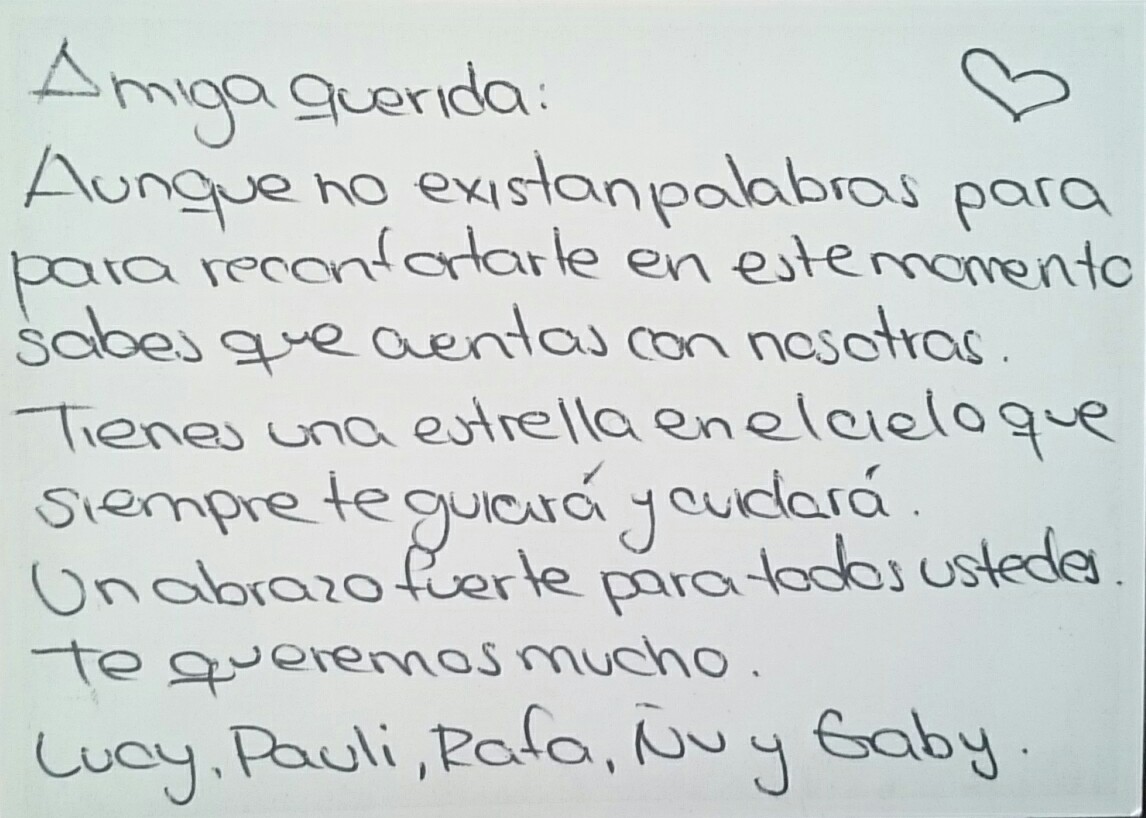 Amiga querida:
Aunque no existan palabras para
para reconfortarte en este momento
sabes que cuentas con nosotras.
Tienes una estrella en el cielo que
siempre te guiará y cuidará.
Un abrazo fuerte para todos ustedes.
Te queremos mucho.
Lucy, Pauli, Rafa, Ñu y Gaby.